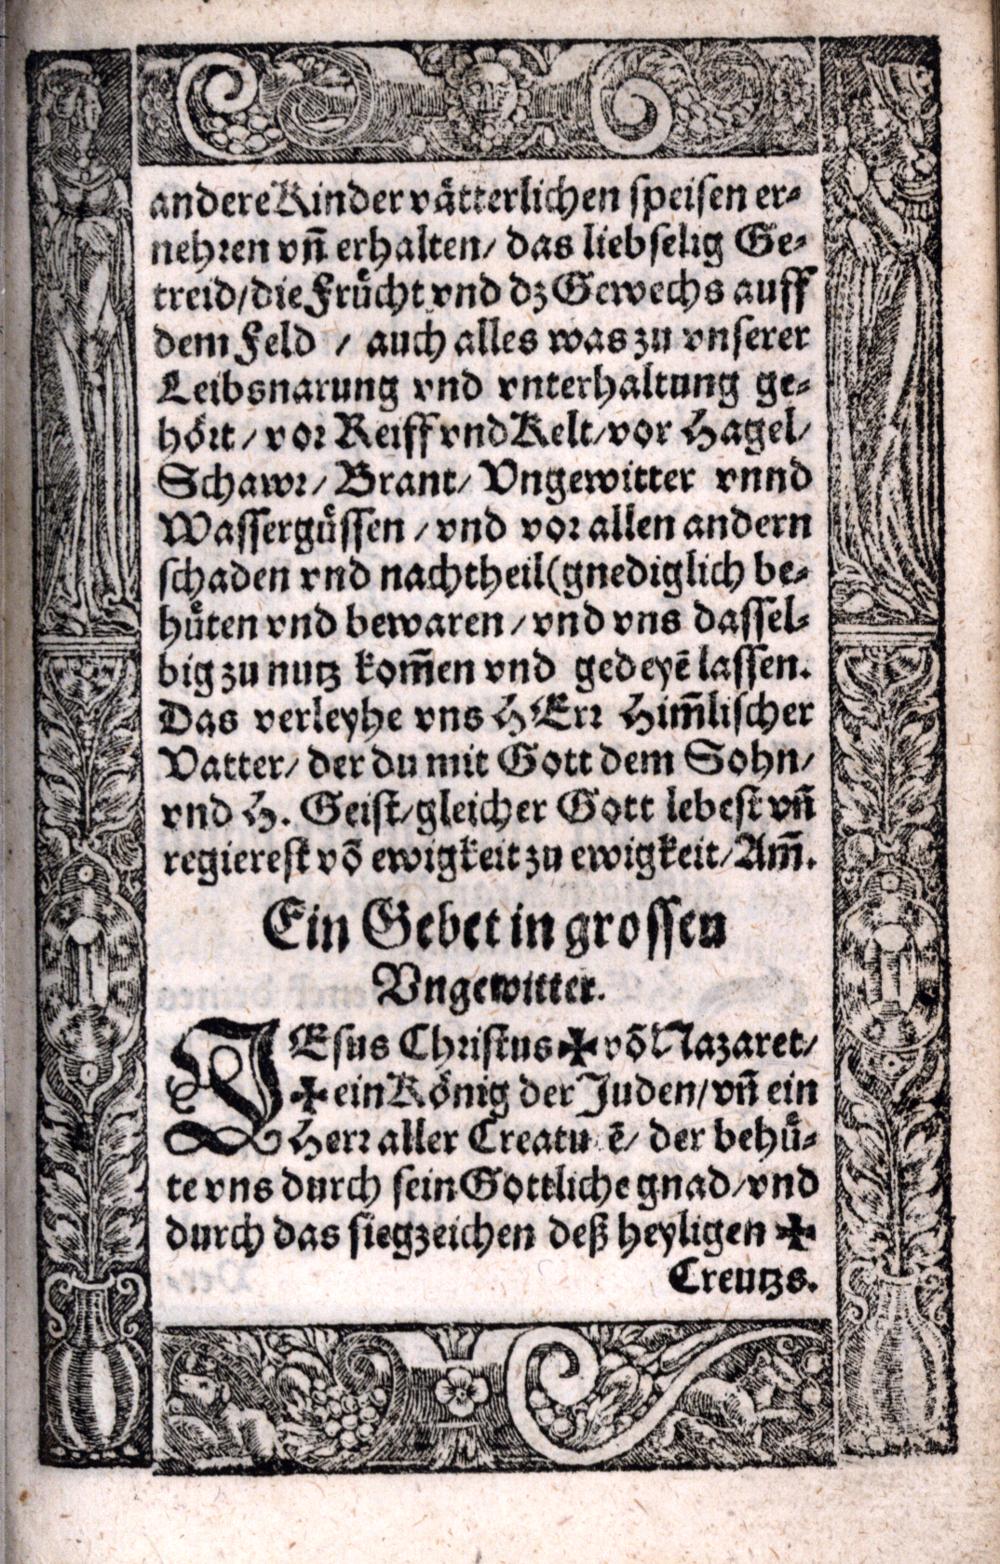 andere Kinder vätterlichen speisen er-
nehren vñ erhalten/ das liebselig Ge-
treid/die Frücht vnd dz Gewechs auff
dem Feld / auch alles was zu vnserer
Leibsnarung vnd vnterhaltung ge-
hört/ vor Reiff vnd Kelt/vor Hagel/
Schawr/ Brant/ Vngewitter vnnd
Wassergüssen /vnd vor allen andern
schaden vnd nachtheil(gnediglich be-
hüten vnd bewaren/vnd vns dassel-
big zu nutz kom̃en vnd gedeyẽ lassen.
Das verleyhe vns HErr Him̃lischer
Vatter/ der du mit Gott dem Sohn/
vnd H. Geist/gleicher Gott lebest vñ
regierest võ ewigkeit zu ewigkeit/Am̃.
Ein Gebet in grossen
Vngewitter.
JEsus Christus ✠ võ Nazaret/
✠ ein König der Juden/vñ ein
Herr aller Creatu ẽ/ der behü-
te vns durch sein Göttliche gnad/vnd
durch das siegzeichen deß heyligen ✠
Creutzs.